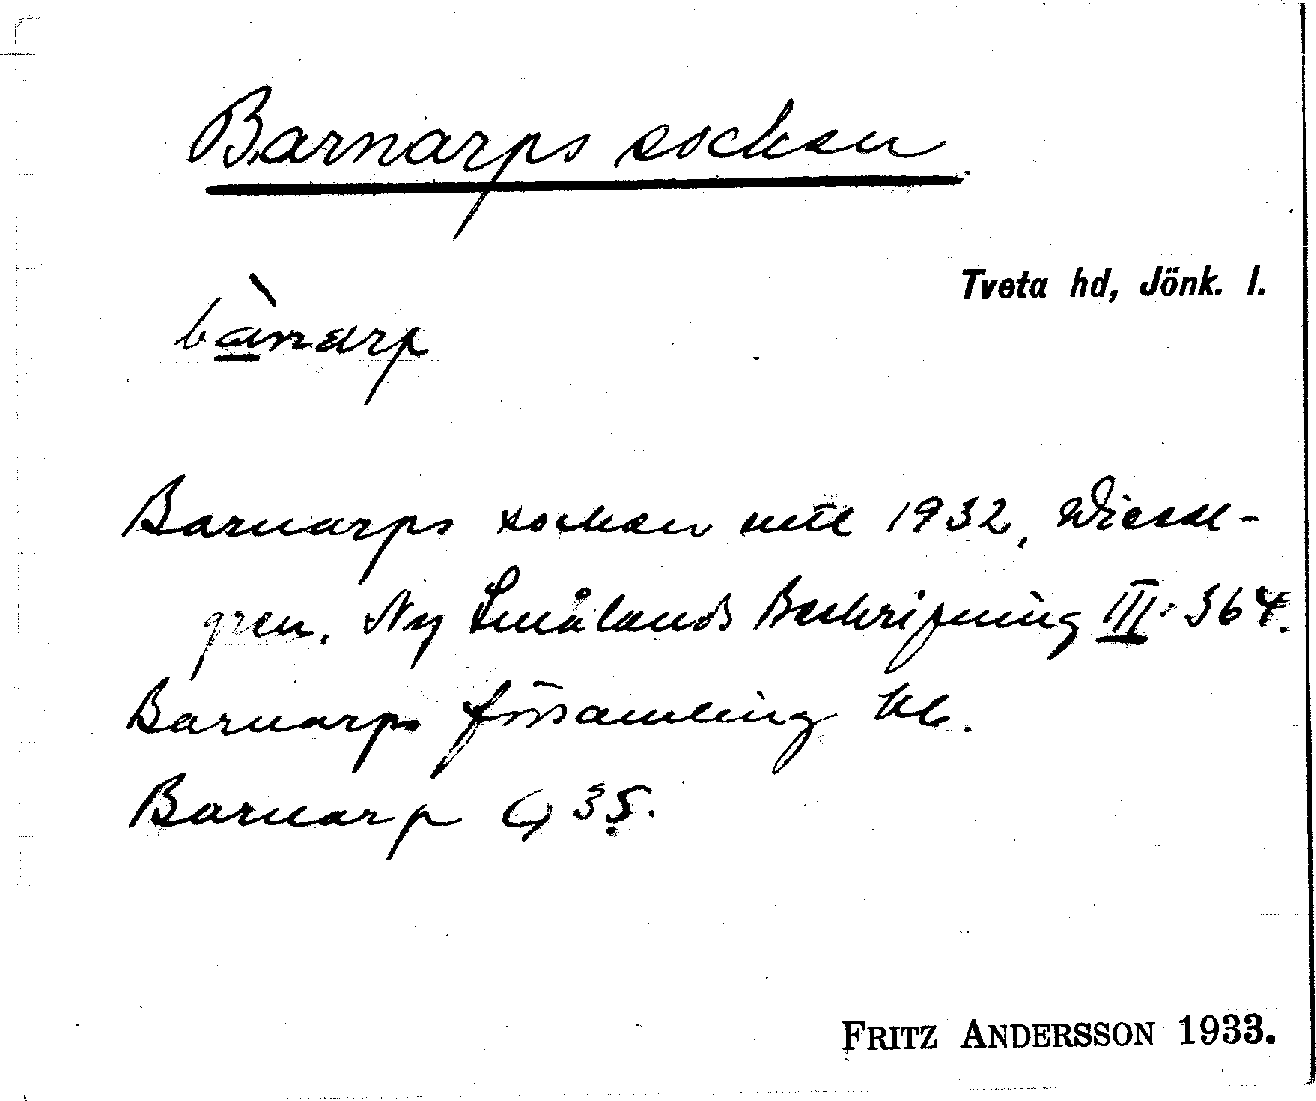 Barnarps socken
Tveta hd, Jönk. l.
bànarp
Barnarps socken mtl 1932, Wiesel-
gren. Ny Smålands Beskrifning III. 364.
Barnarps församling kb.
Barnarp G 35.
FRITZ ANDERSSON 1933.